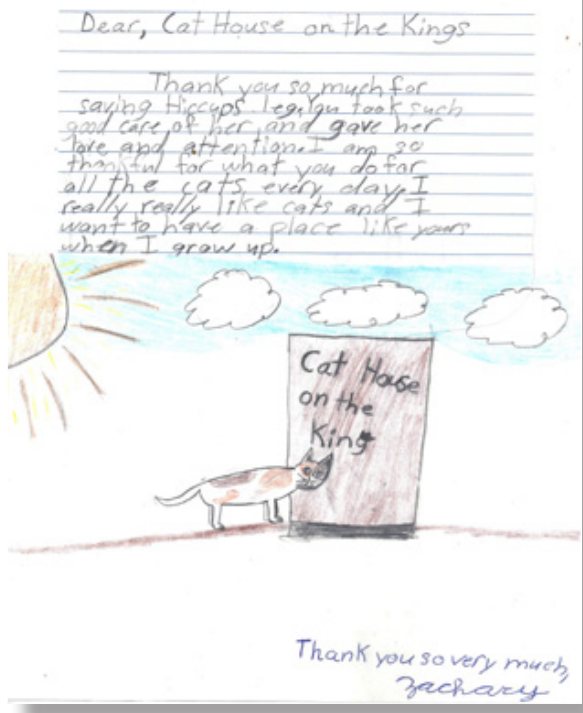 Dear, Cat House on the Kings
Thank you so much for
saving Hiccups leg. You took such
good care of her and gave her
love and attention. I am so
thankful for what you do for
all the cats every day. I
really really like cats and I
want to have a place like yours
when I grow up.
Cat House
on the
Kings
Thank you so very much,
Zachary